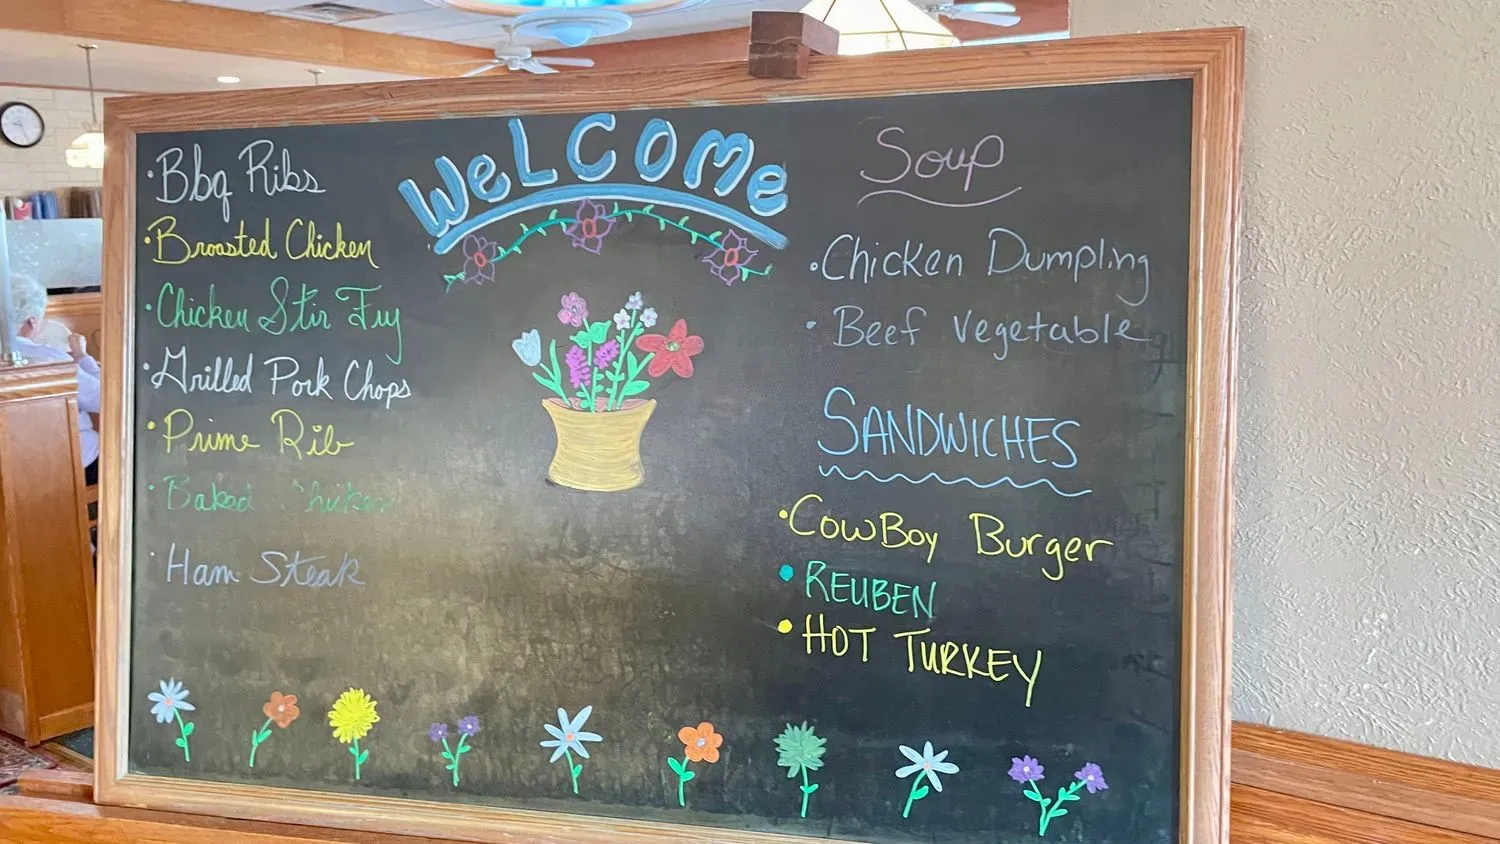 WeLCOMe
· Bbq Ribs
· Broasted Chicken
· Chicken Stir Fry
· Grilled Pork Chops
· Prime Rib
· Baked Chicken
· Ham Steak
Soup
· Chicken Dumpling
· Beef Vegetable
SANDWICHES
· COWBOY Burger
· REUBEN
· HOT TURKEY